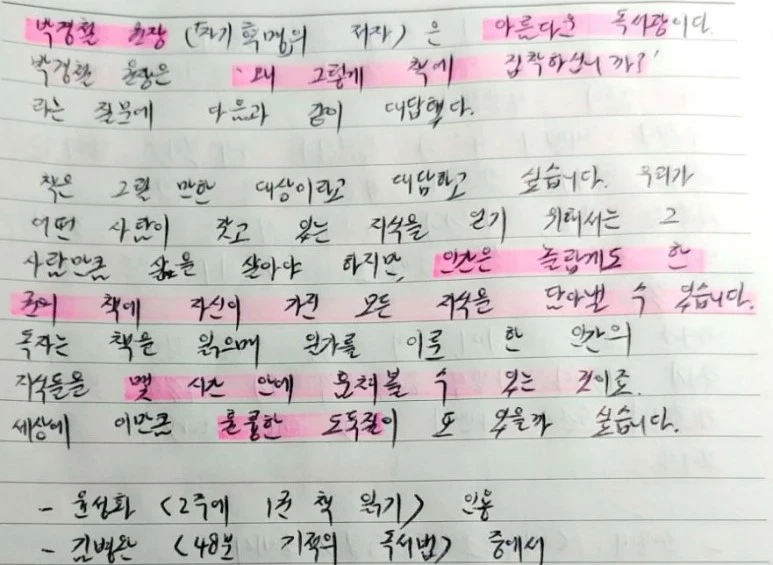 박경철 원장 (「자기 혁명」의 저자) 은 아름다운 독서광이다.
박경철 원장은 '왜 그렇게 책에 집착하십니까?'
라는 질문에 다음과 같이 대답했다.
책은 그럴 만한 대상이라고 대답하고 싶습니다. 우리가
어떤 사람이 갖고 있는 지식을 얻기 위해서는 그
사람만큼 삶을 살아야 하지만, 인간은 놀랍게도 한
권의 책에 자신이 가진 모든 지식을 담아낼 수 있습니다.
독자는 책을 읽으며 일가를 이룬 한 인간의
지식들을 몇 시간 안에 훔쳐볼 수 있는 것이죠.
세상에 이만큼 훌륭한 도둑질이 또 있을까 싶습니다.
- 윤성화 <2주에 1권 책 읽기> 인용
- 김병완 <48분 기적의 독서법> 중에서